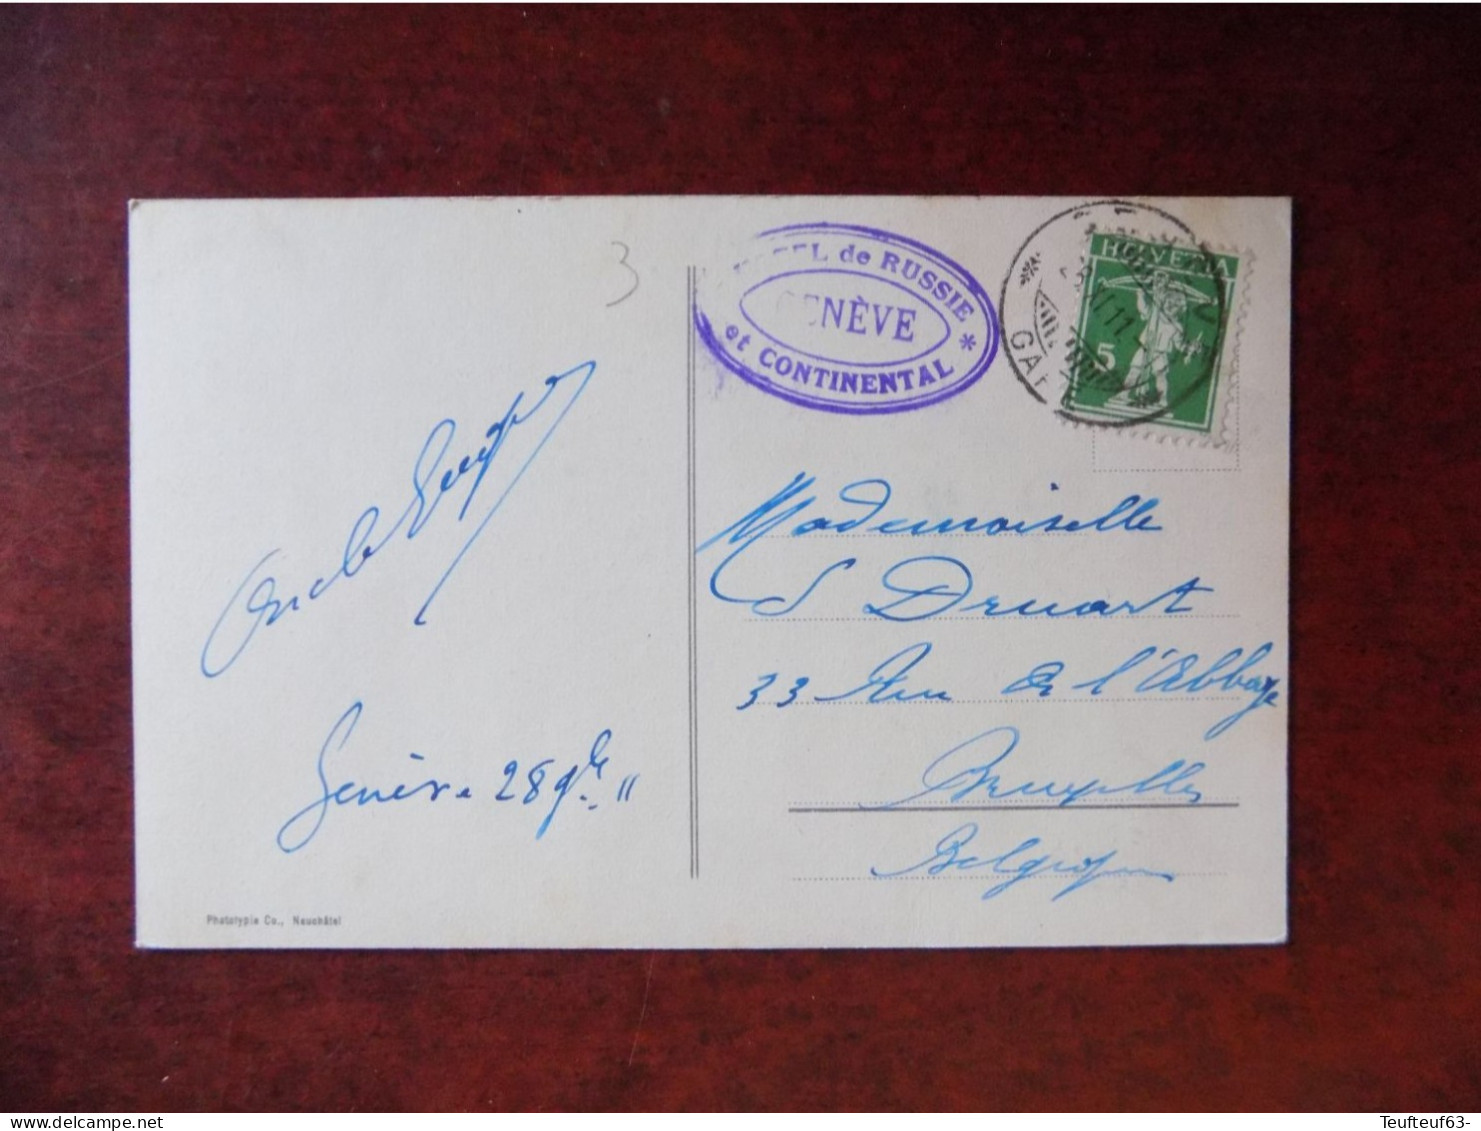 3
HOTEL de RUSSIE
GENÈVE
et CONTINENTAL *
HELVETIA
5
11
GARE
Oncle
Genève 28 9bre 11
Mademoiselle
S Druart
33 Rue de l'Abbaye
Bruxelles
Belgique
Phototypie Co., Neuchâtel
Teufteuf63-